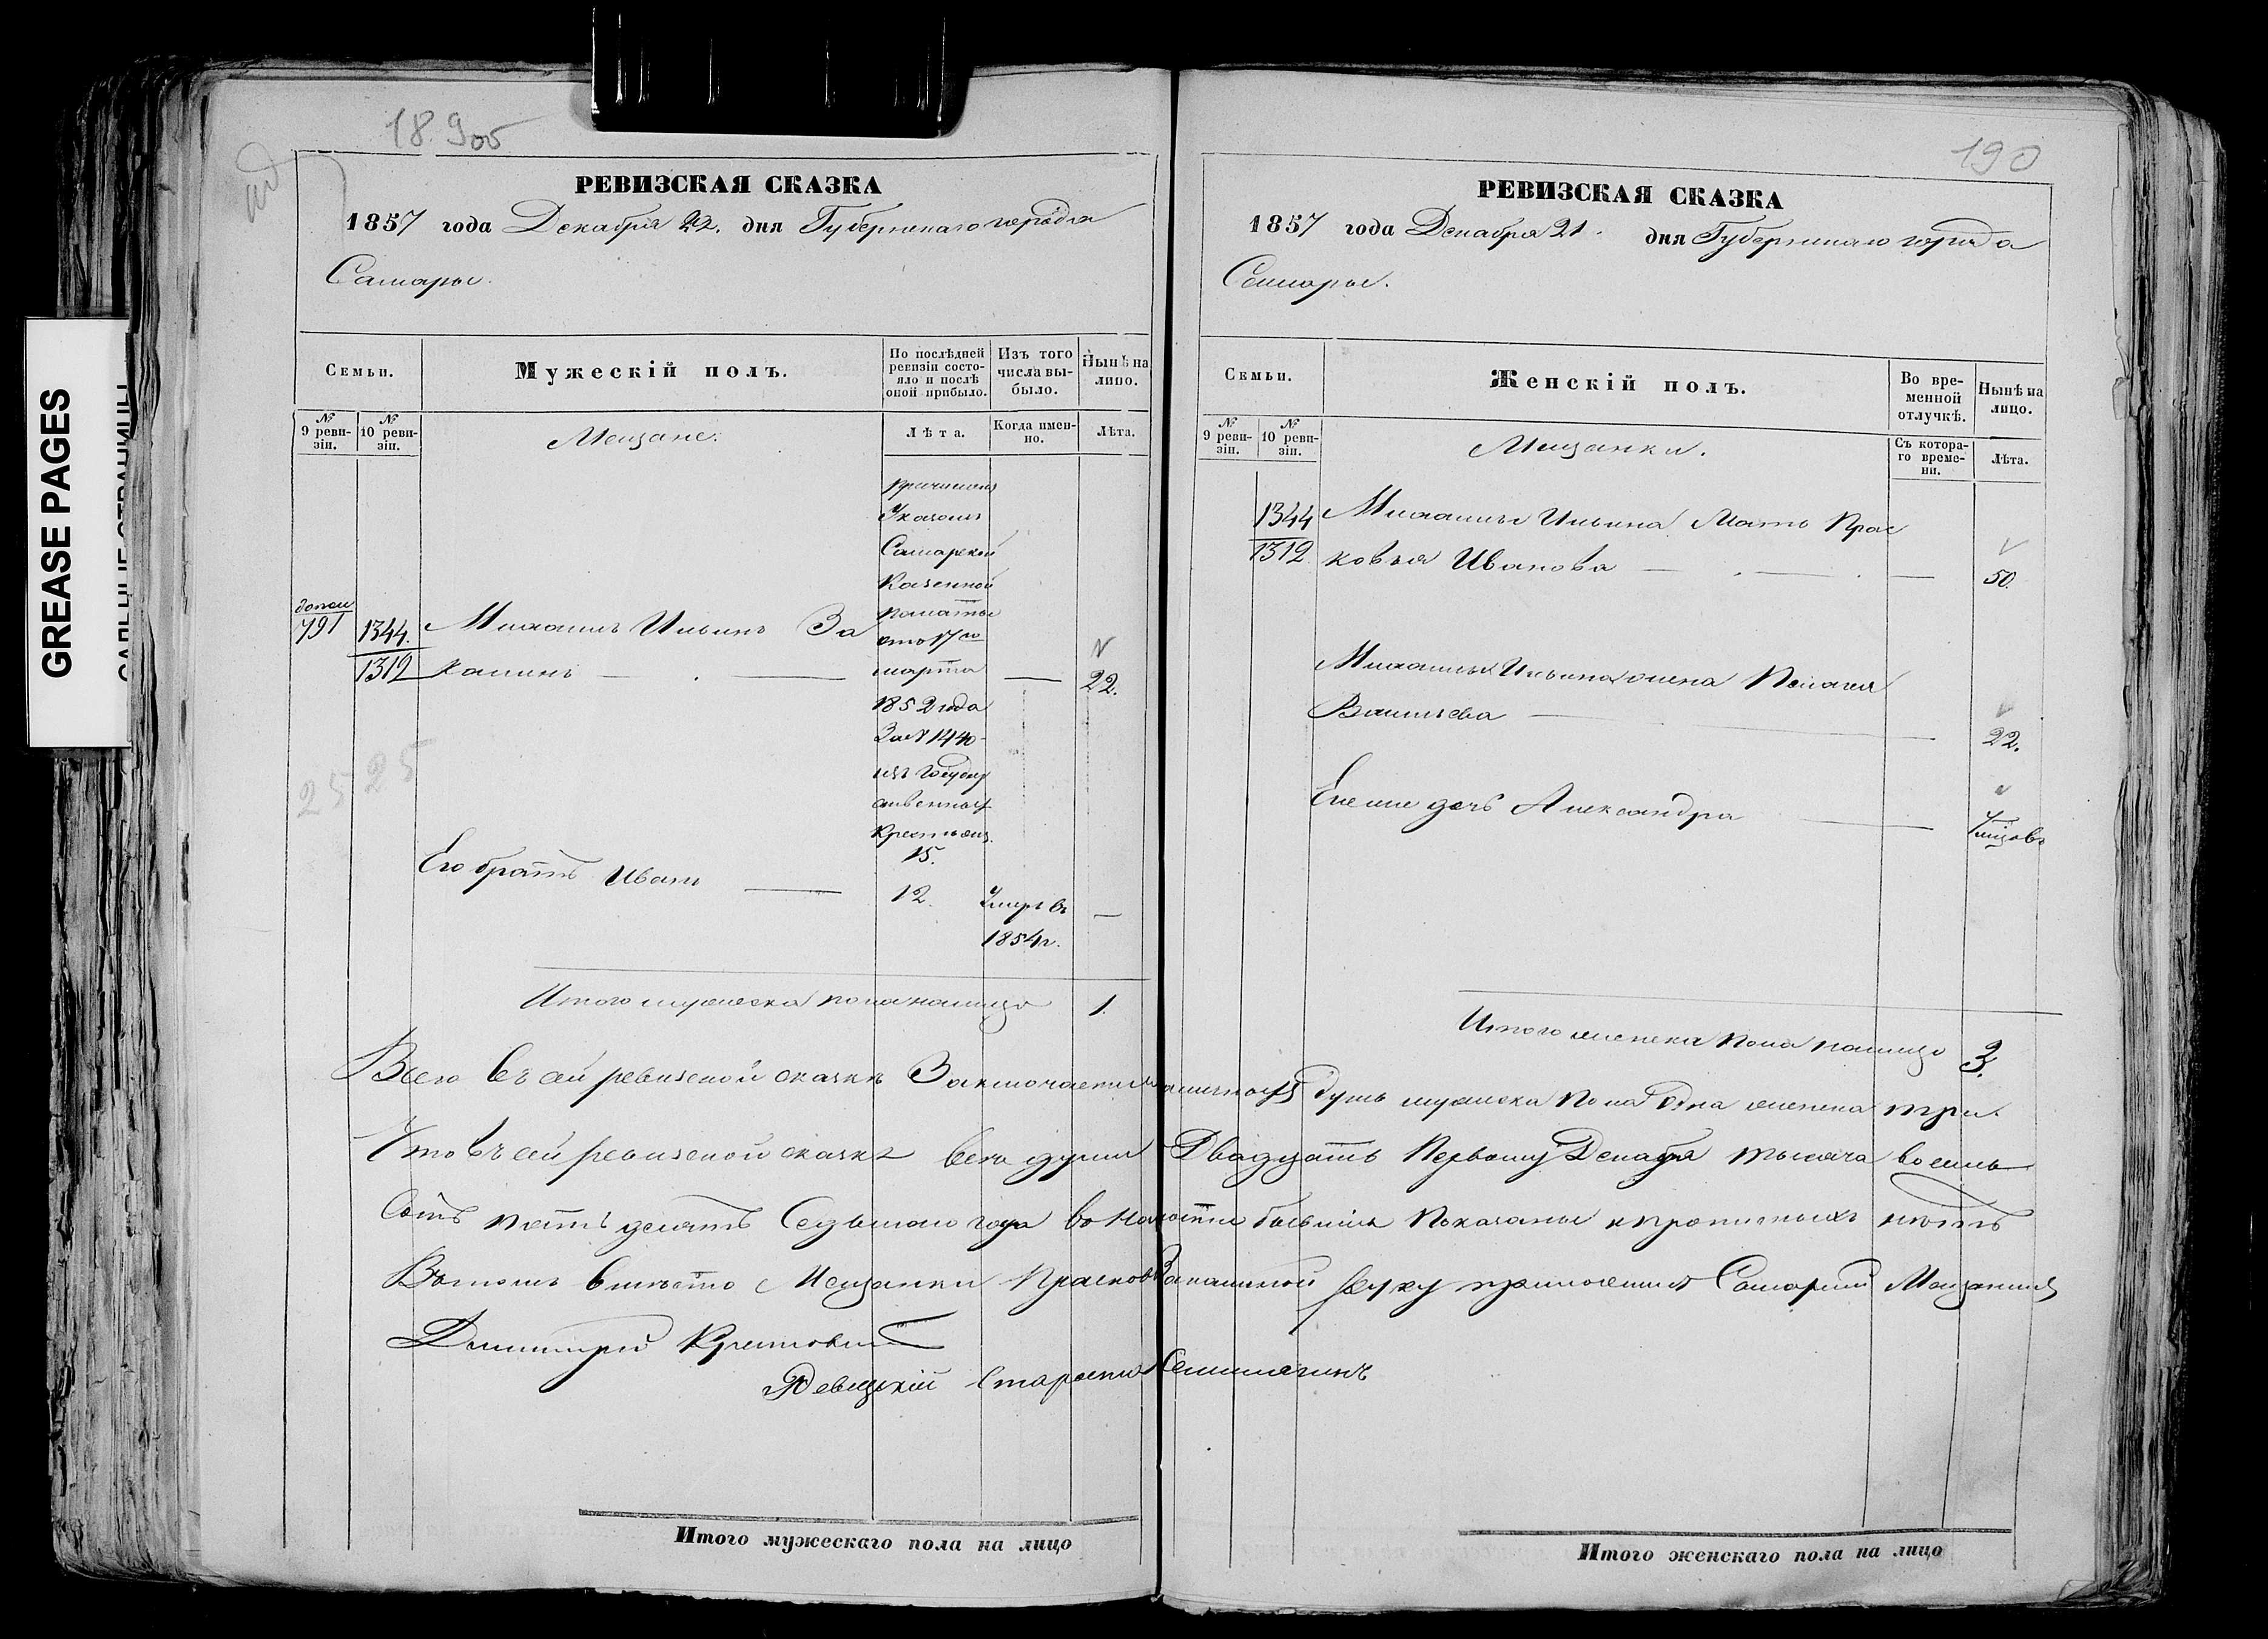 GREASE PAGES
189об
РЕВИЗСКАЯ СКАЗКА
1857 года Декабря 22. дня Губернскаго города
Самары.
Семьи.
Мужескій полъ.
По послѣдней ревизіи состояло и послѣ оной прибыло.
Изъ того числа выбыло.
Нынѣ на лицо.
№ 9 ревизіи.
№ 10 ревизіи.
Мещане.
Лѣта.
Когда именно.
Лѣта.
причислен
Указомъ
Самарской
Казенной
допол
791
1344.
1312
Михаилъ Ильинъ За
палаты
отъ 17го
марта
22.
1852 года
За № 1440
изъ государ
ственных
крестьян.
15.
2525
Его братъ Иванъ
12.
Умеръ въ
1854г.
Итого мужеска пола налицо 1.
190
РЕВИЗСКАЯ СКАЗКА
1857 года Декабря 21. дня Губернскаго города
Самары.
Семьи.
Женскій полъ.
Во временной отлучкѣ.
Нынѣ на лицо.
№ 9 ревизіи.
№ 10 ревизіи.
Мещанки.
Съ котораго времени.
Лѣта.
1344
1312
Михаилы Ильина Мать Прас
ковья Иванова
50.
Михаилы Ильина жена Пелагея
Васильева
22.
Ея же дочь Александра
7 месяцовъ
Итого женска пола налицо 3.
Всего въ сей ревизской сказкѣ Заключается наличных душъ мужска пола одна женска три.
Что въ сей ревизской сказке всѣ души Двадцать Первому Декабря тысяча восемь
Сотъ пятьдесятъ Седьмого года въ наличности бывшія Показаны и прописныхъ нѣтъ
Въ томъ вмѣсто Мещанки Прасковьи Закалиной руку приложилъ Самарский Мещанинъ
Дмитрий
Староста
Итого мужескаго пола на лицо
Итого женскаго пола на лицо